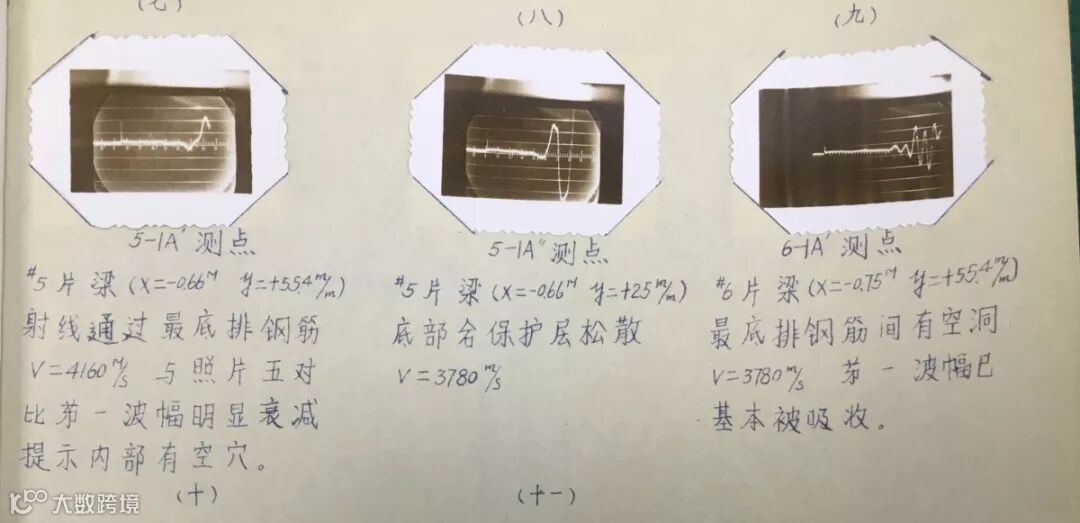 (七)
(八)
(九)
5-1A' 测点
#5 片 梁 (X=-0.66M y=+55.4m/m)
射线通过最底排钢筋
V=4160M/S 与照片五对
比第一波幅明显衰减
提示内部有空穴。
(十)
5-1A" 测点
#5 片 梁 (X=-0.66M y=+25m/m)
底部名保护层松散
V=3780M/S
(十一)
6-1A' 测点
#6 片 梁 (X=-0.75M y=+55.4m/m)
最底排钢筋间有空洞
V=3780M/S 第一波幅已
基本被吸收。
大数跨境